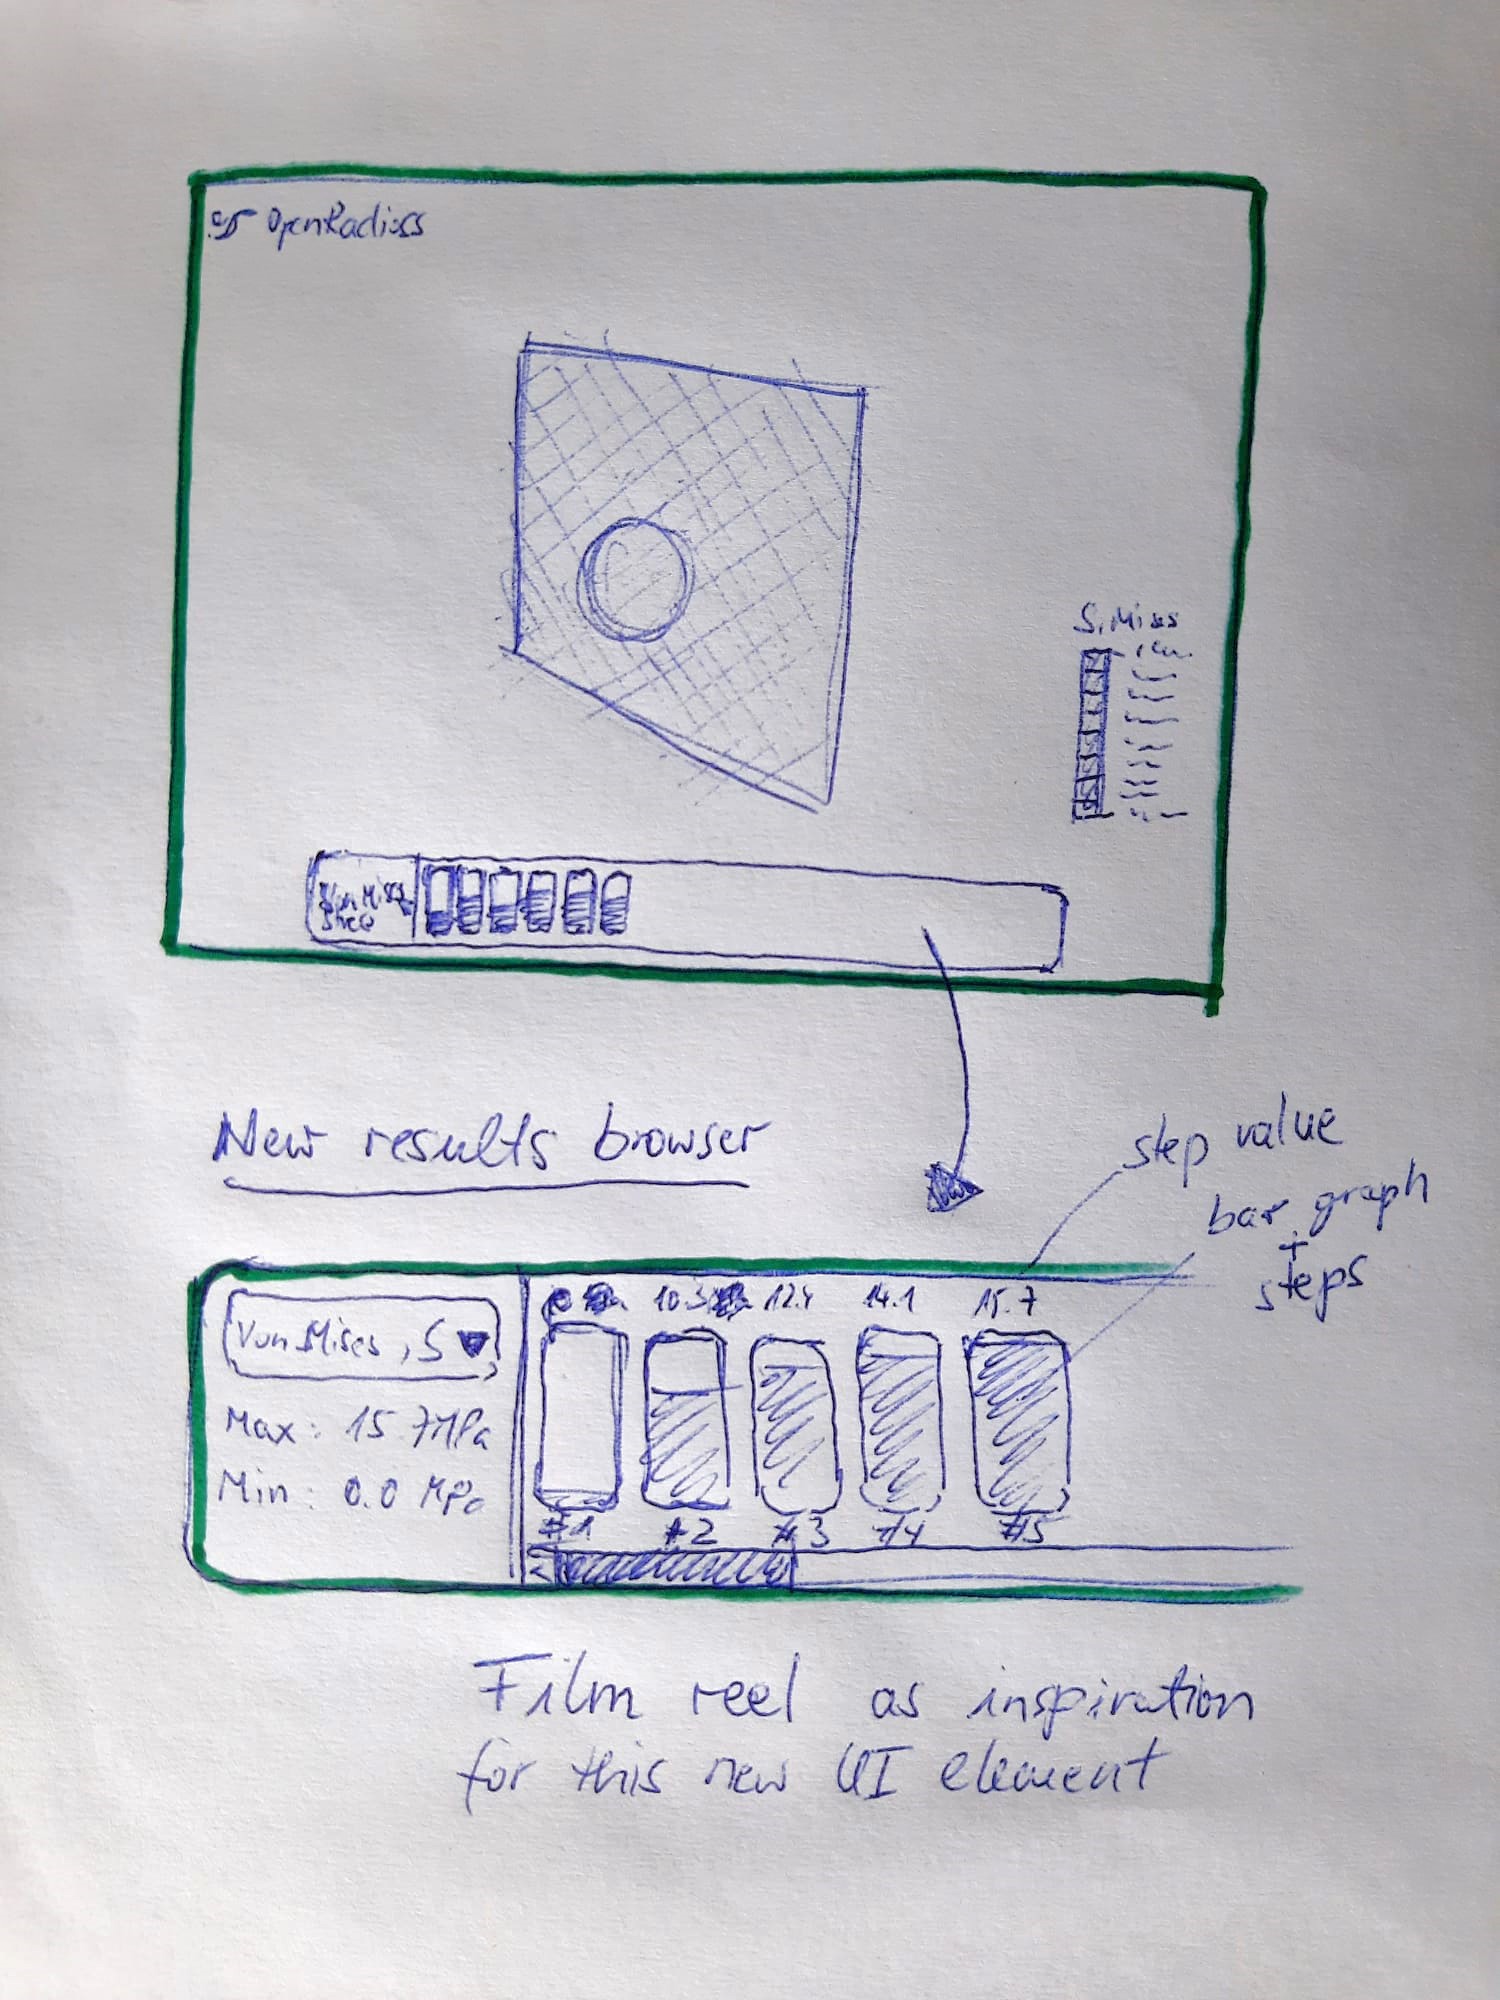 OpenRadioss
S, Mises
Von Mises
New results browser
step value
bar graph
+
steps
0 10.3 12.4 14.1 15.7
Von Mises, S
Max: 15.7MPa
Min: 0.0 MPa
#1 #2 #3 #4 #5
<
Film reel as inspiration
for this new UI element